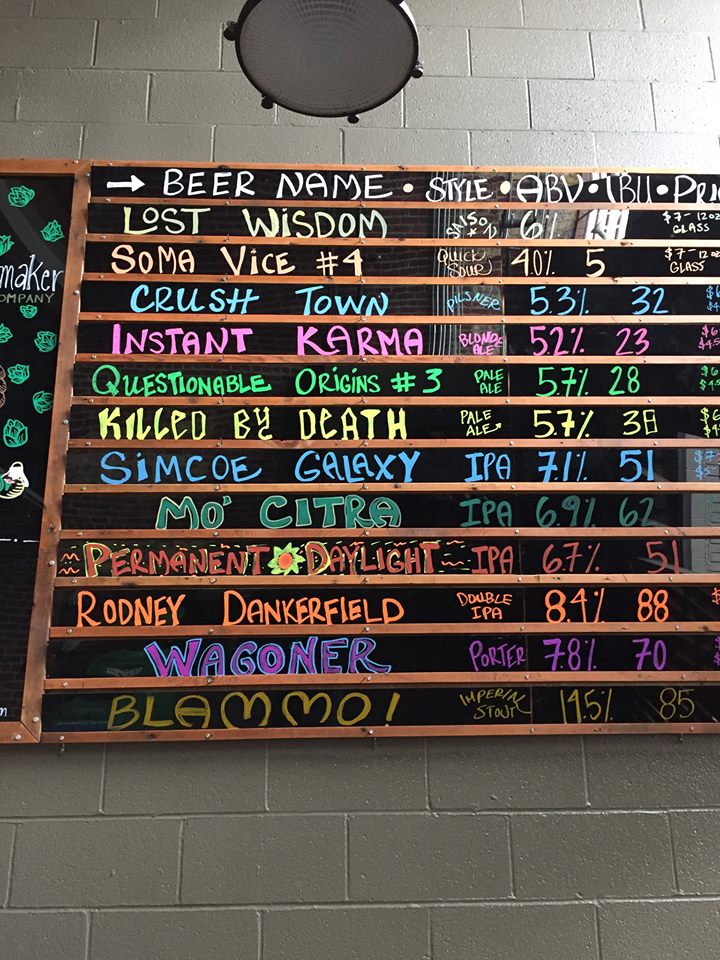 → BEER NAME • STYLE • ABV • IBU • PRI
LOST WISDOM SAISON 6% $7-12oz GLASS
SOMA VICE #4 QUICK SOUR 4.0% 5 $7-12oz GLASS
CRUSH TOWN PILSNER 5.3% 32 $6
INSTANT KARMA BLONDE ALE 5.2% 23 $6 $4.5
QUESTIONABLE ORIGINS #3 PALE ALE 5.7% 28 $6
KILLED BY DEATH PALE ALE 5.7% 38 $6
SIMCOE GALAXY IPA 7.1% 51 $7
MO' CITRA IPA 6.9% 62
PERMANENT DAYLIGHT IPA 6.7% 51
RODNEY DANKERFIELD DOUBLE IPA 8.4% 88
WAGONER PORTER 7.8% 70
BLAMMO! IMPERIAL STOUT 14.5% 85
maker
OMPANY